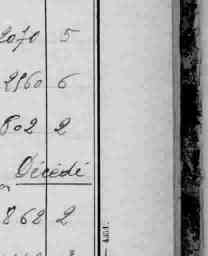 2070 5
2960 6
802 2
Décédé
862 2